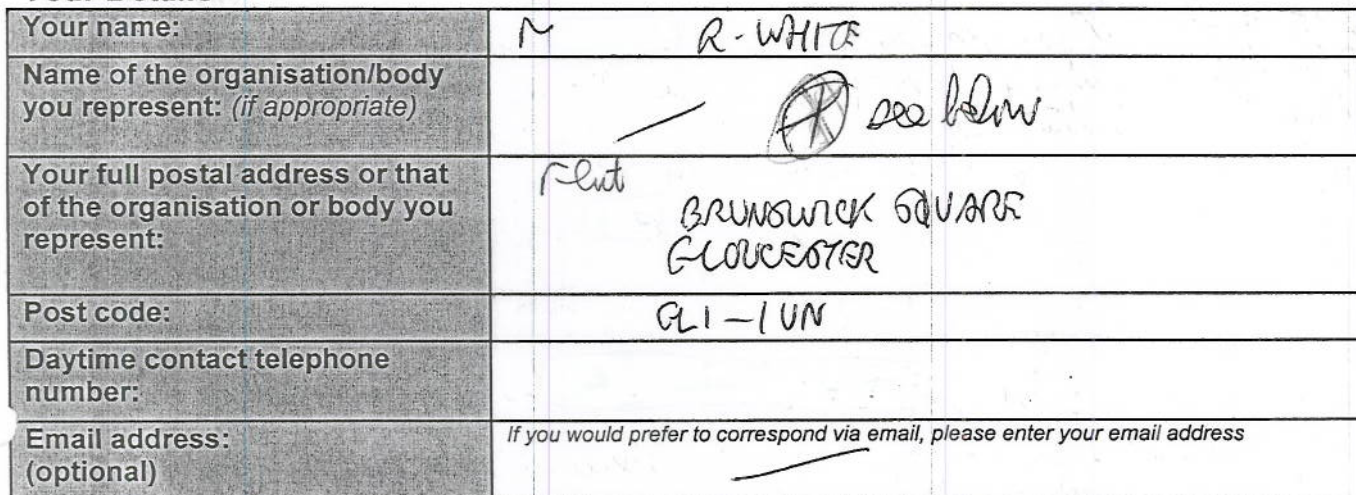 Your name:
R-WHITE
Name of the organisation/body
you represent: (if appropriate)
see below
Your full postal address or that
of the organisation or body you
represent:
Flat
BRUNSWICK SQUARE
GLOUCESTER
Post code:
GL1-1UN
Daytime contact telephone
number:
Email address:
(optional)
If you would prefer to correspond via email, please enter your email address